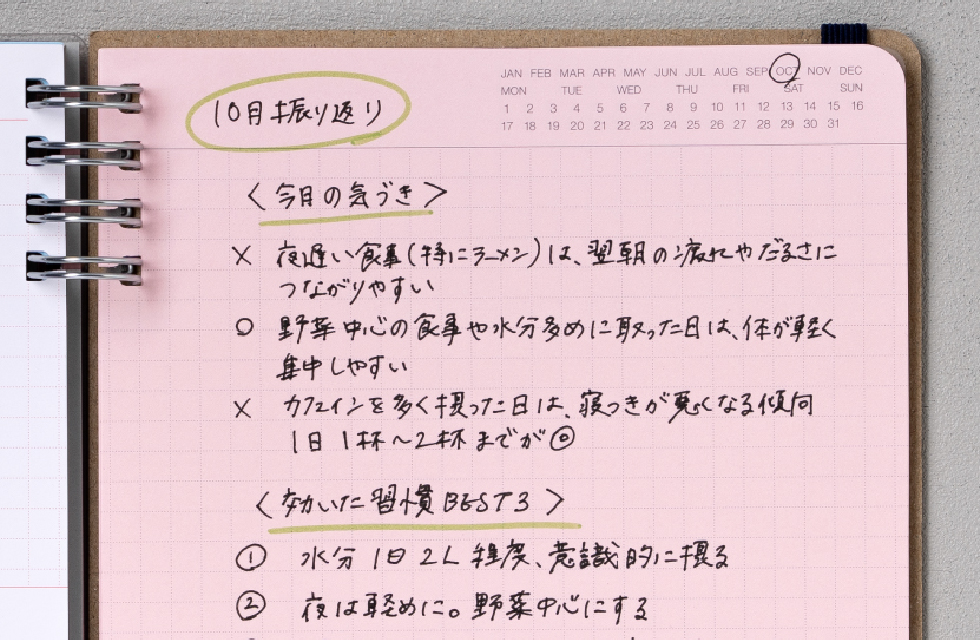 JAN FEB MAR APR MAY JUN JUL AUG SEP OCT NOV DEC
MON TUE WED THU FRI SAT SUN
1 2 3 4 5 6 7 8 9 10 11 12 13 14 15 16
17 18 19 20 21 22 23 24 25 26 27 28 29 30 31
10月振り返り
〈今月の気づき〉
× 夜遅い食事(特にラーメン)は、翌朝の疲れやだるさに
つながりやすい
○ 野菜中心の食事や水分多めに取った日は、体が軽く
集中しやすい
× カフェインを多く摂った日は、寝つきが悪くなる傾向
1日1杯〜2杯までが◎
〈効いた習慣BEST3〉
① 水分1日2L程度、意識的に摂る
② 夜は軽めに。野菜中心にする